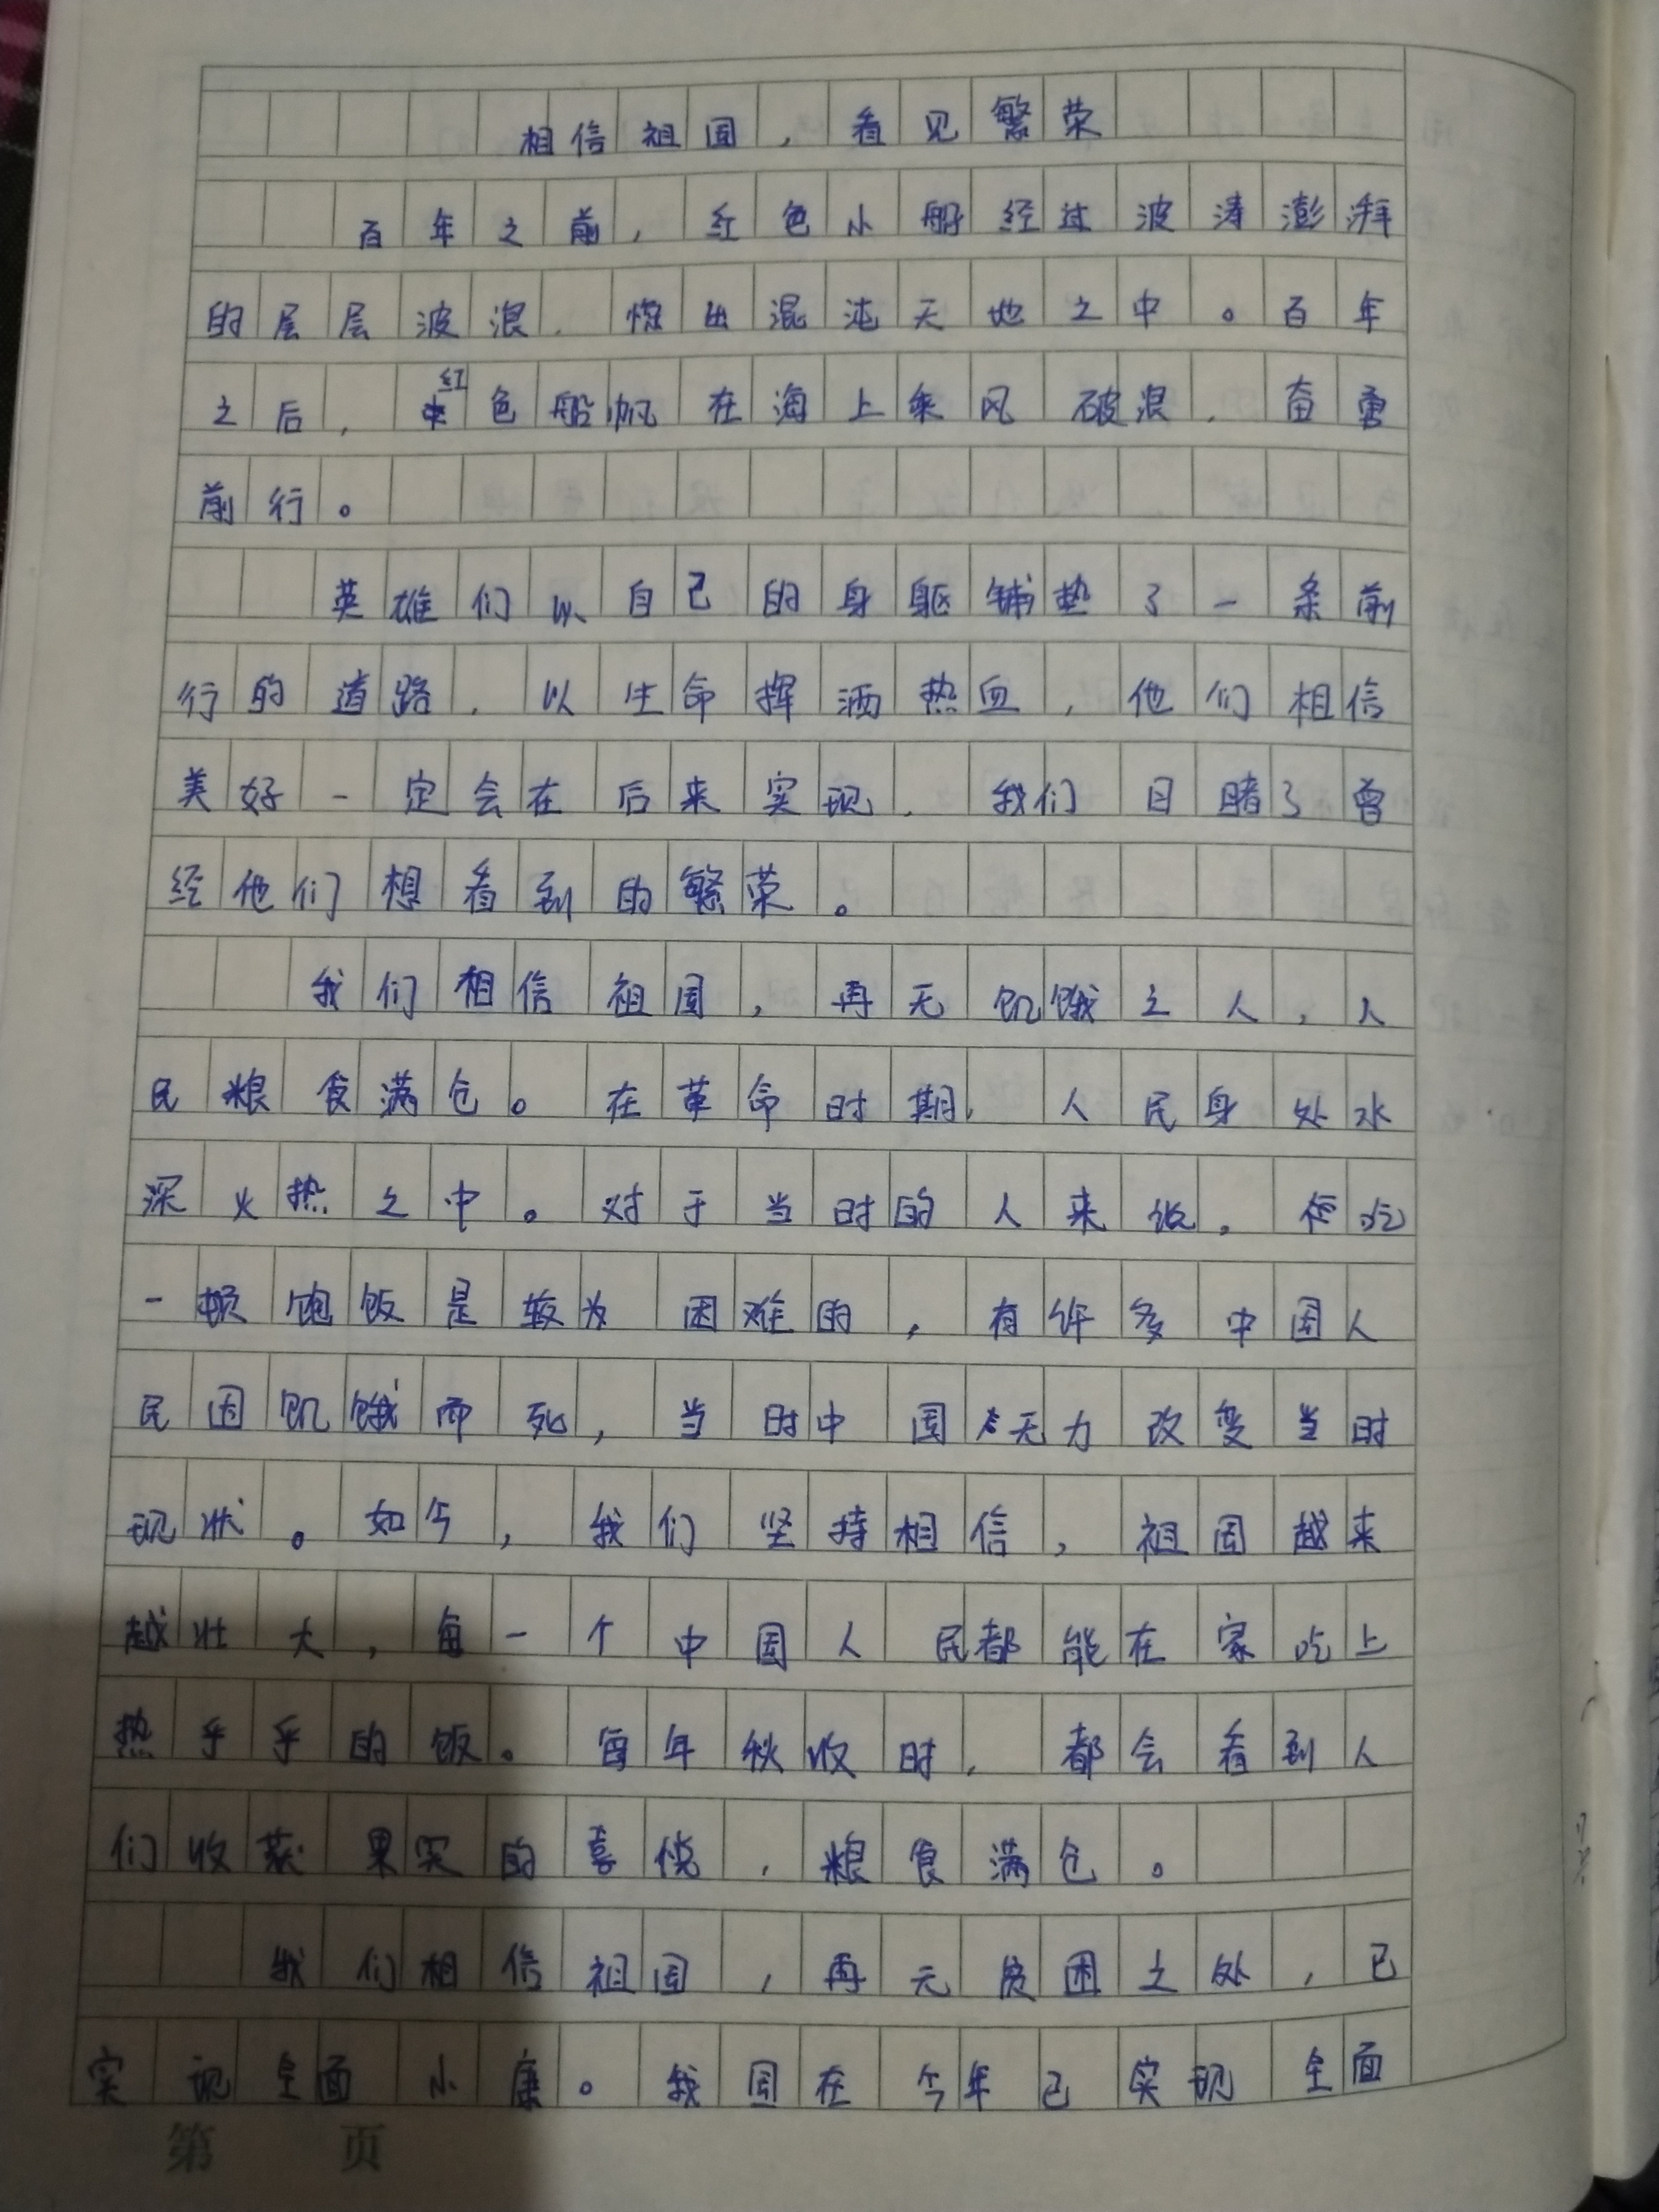 相信祖国,看见繁荣
百年之前,红色小船经过波涛澎湃
的层层波浪,惊出混沌天地之中。百年
之后,红色船帆在海上乘风破浪,奋勇
前行。
英雄们以自己的身躯铺垫了一条前
行的道路,以生命挥洒热血,他们相信
美好一定会在后来实现,我们目睹了曾
经他们想看到的繁荣。
我们相信祖国,再无饥饿之人,人
民粮食满仓。在革命时期,人民身处水
深火热之中。对于当时的人来说,吃
一顿饱饭是较为困难的,有许多中国人
民因饥饿而死,当时中国无力改变当时
现状。如今,我们坚持相信,祖国越来
越壮大,每一个中国人民都能在家吃上
热乎乎的饭。每年秋收时,都会看到人
们收获果实的喜悦,粮食满仓。
我们相信祖国,再无贫困之处,已
实现全面小康。我国在今年已实现全面
第 页